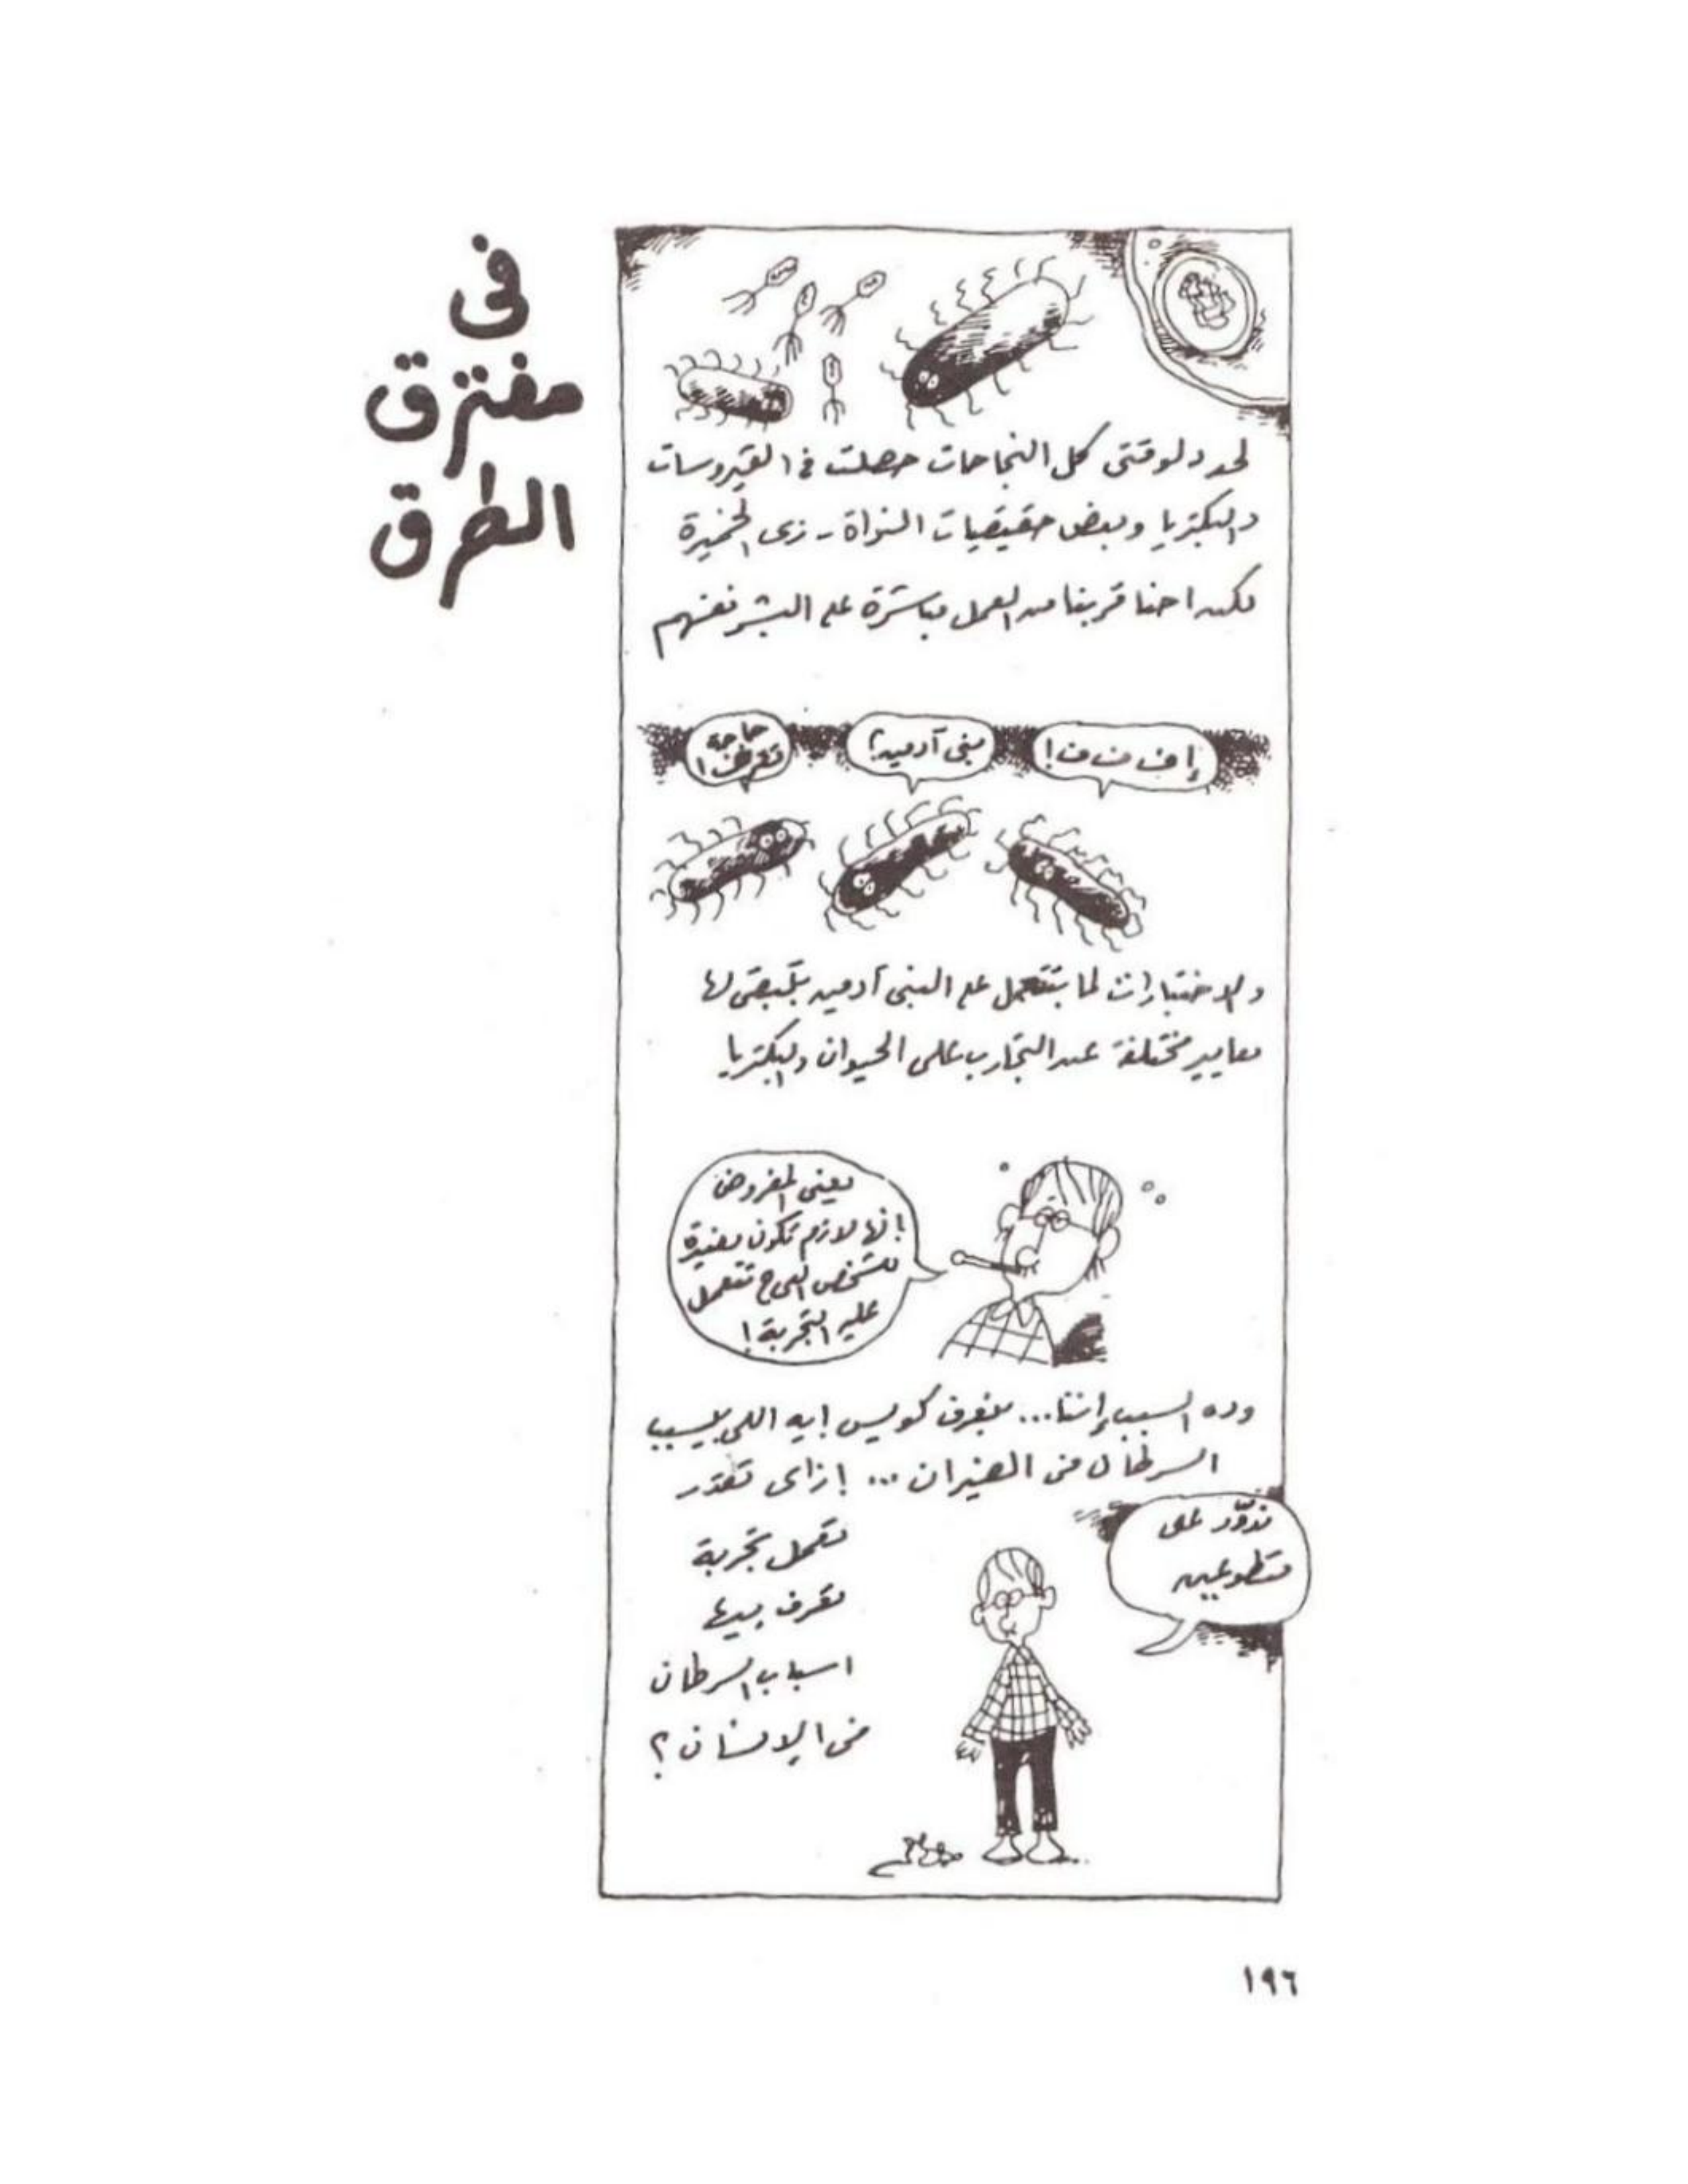 فى
مفترق
الطرق
لحد دلوقتى كل النجاحات حصلت فى الفيروسات
والبكتريا وبعض حقيقيات النواة - زى الخميرة
لكن احنا قربنا من العمل مباشرة على البشر نفسهم
إف ف ف!
بنى آدمين؟
حاجة
تقرف!
والاختبارات لما بتتعمل على البنى آدمين بيبقى لها
معايير مختلفة عن التجارب على الحيوان والبكتريا
يعنى المفروض
إنها لازم تكون مفيدة
للشخص اللى ح تتعمل
عليه التجربة!
وده السبب إننا... بنعرف كويس إيه اللى بيسبب
السرطان فى الفيران ... إزاى نقدر
نعمل تجربة
نعرف بيها
اسباب السرطان
فى الإنسان؟
ندوّر على
متطوعين
١٩٦